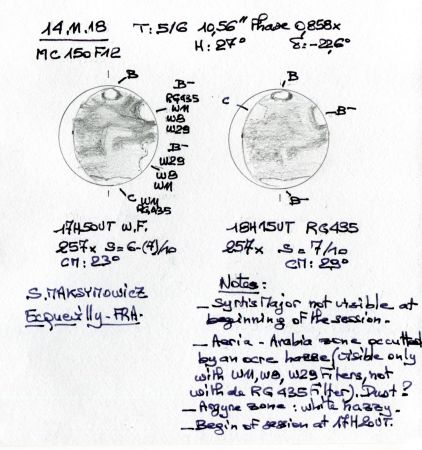 14.11.18 T: 5/6 10,56" Phase 0,858x
MC150F12 H: 27° ε: -22,6°
B
B-
RG435
W11
W8
W29
B-
W29
W8
W11
C W11
RG435
B
C
B-
B-
17H50UT W.F.
257x S=6-(7)/10
CM: 23°
18H15UT RG435
257x S=7/10
CM: 29°
S. MAKSYMOWICZ
Ecquevilly-FRA.
Notes:
_ Syrtis Major not visible at
beginning of the session.
_ Aeria - Arabia zone occulted
by an ocre hazse (visible only
with W11, W8, W29 Filters, not
with de RG435 Filter). Dust?
_ Argyre zone: white hazzy.
_ Begin of session at 17H20UT.